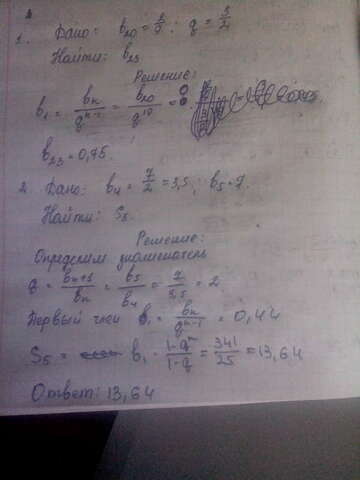 1. Дано: b₂₀ = 2/9; q = 3/2
Найти: b₂₃
Решение:
b₁ = bₙ/qⁿ⁻¹ = b₂₀/q¹⁹ =
b₂₃ = 0,75.
2. Дано: b₄ = 7/2 = 3,5; b₅ = 7.
Найти: S₅
Решение:
Определим знаменатель
q = bₙ₊₁/bₙ = b₅/b₄ = 7/3,5 = 2
Первый член b₁ = bₙ/qⁿ⁻¹ = 0,44
S₅ = b₁ · 1-qⁿ/1-q = 341/25 = 13,64
Ответ: 13,64